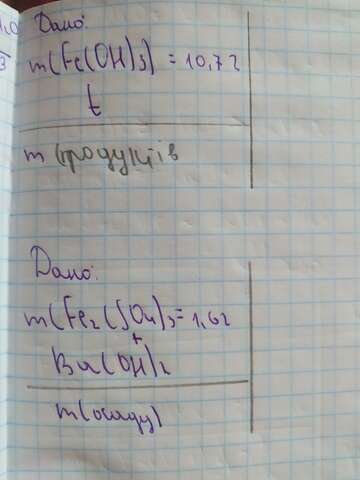 Дано:
m(Fe(OH)3) = 10,7г
t
m (продуктів
Дано:
m(Fe2(SO4)3 = 1,6г
+
Ba(OH)2
m(осаду)